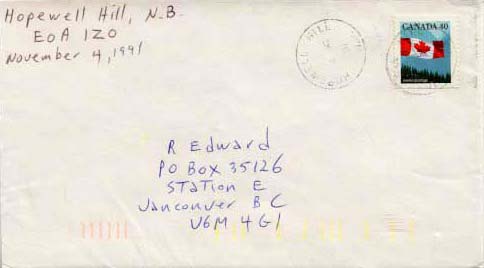 Hopewell Hill, N.B.
E0A 1Z0
November 4, 1991
CANADA 40
R Edward
PO BOX 35126
STATION E
Vanconver B C
V6M 4G1